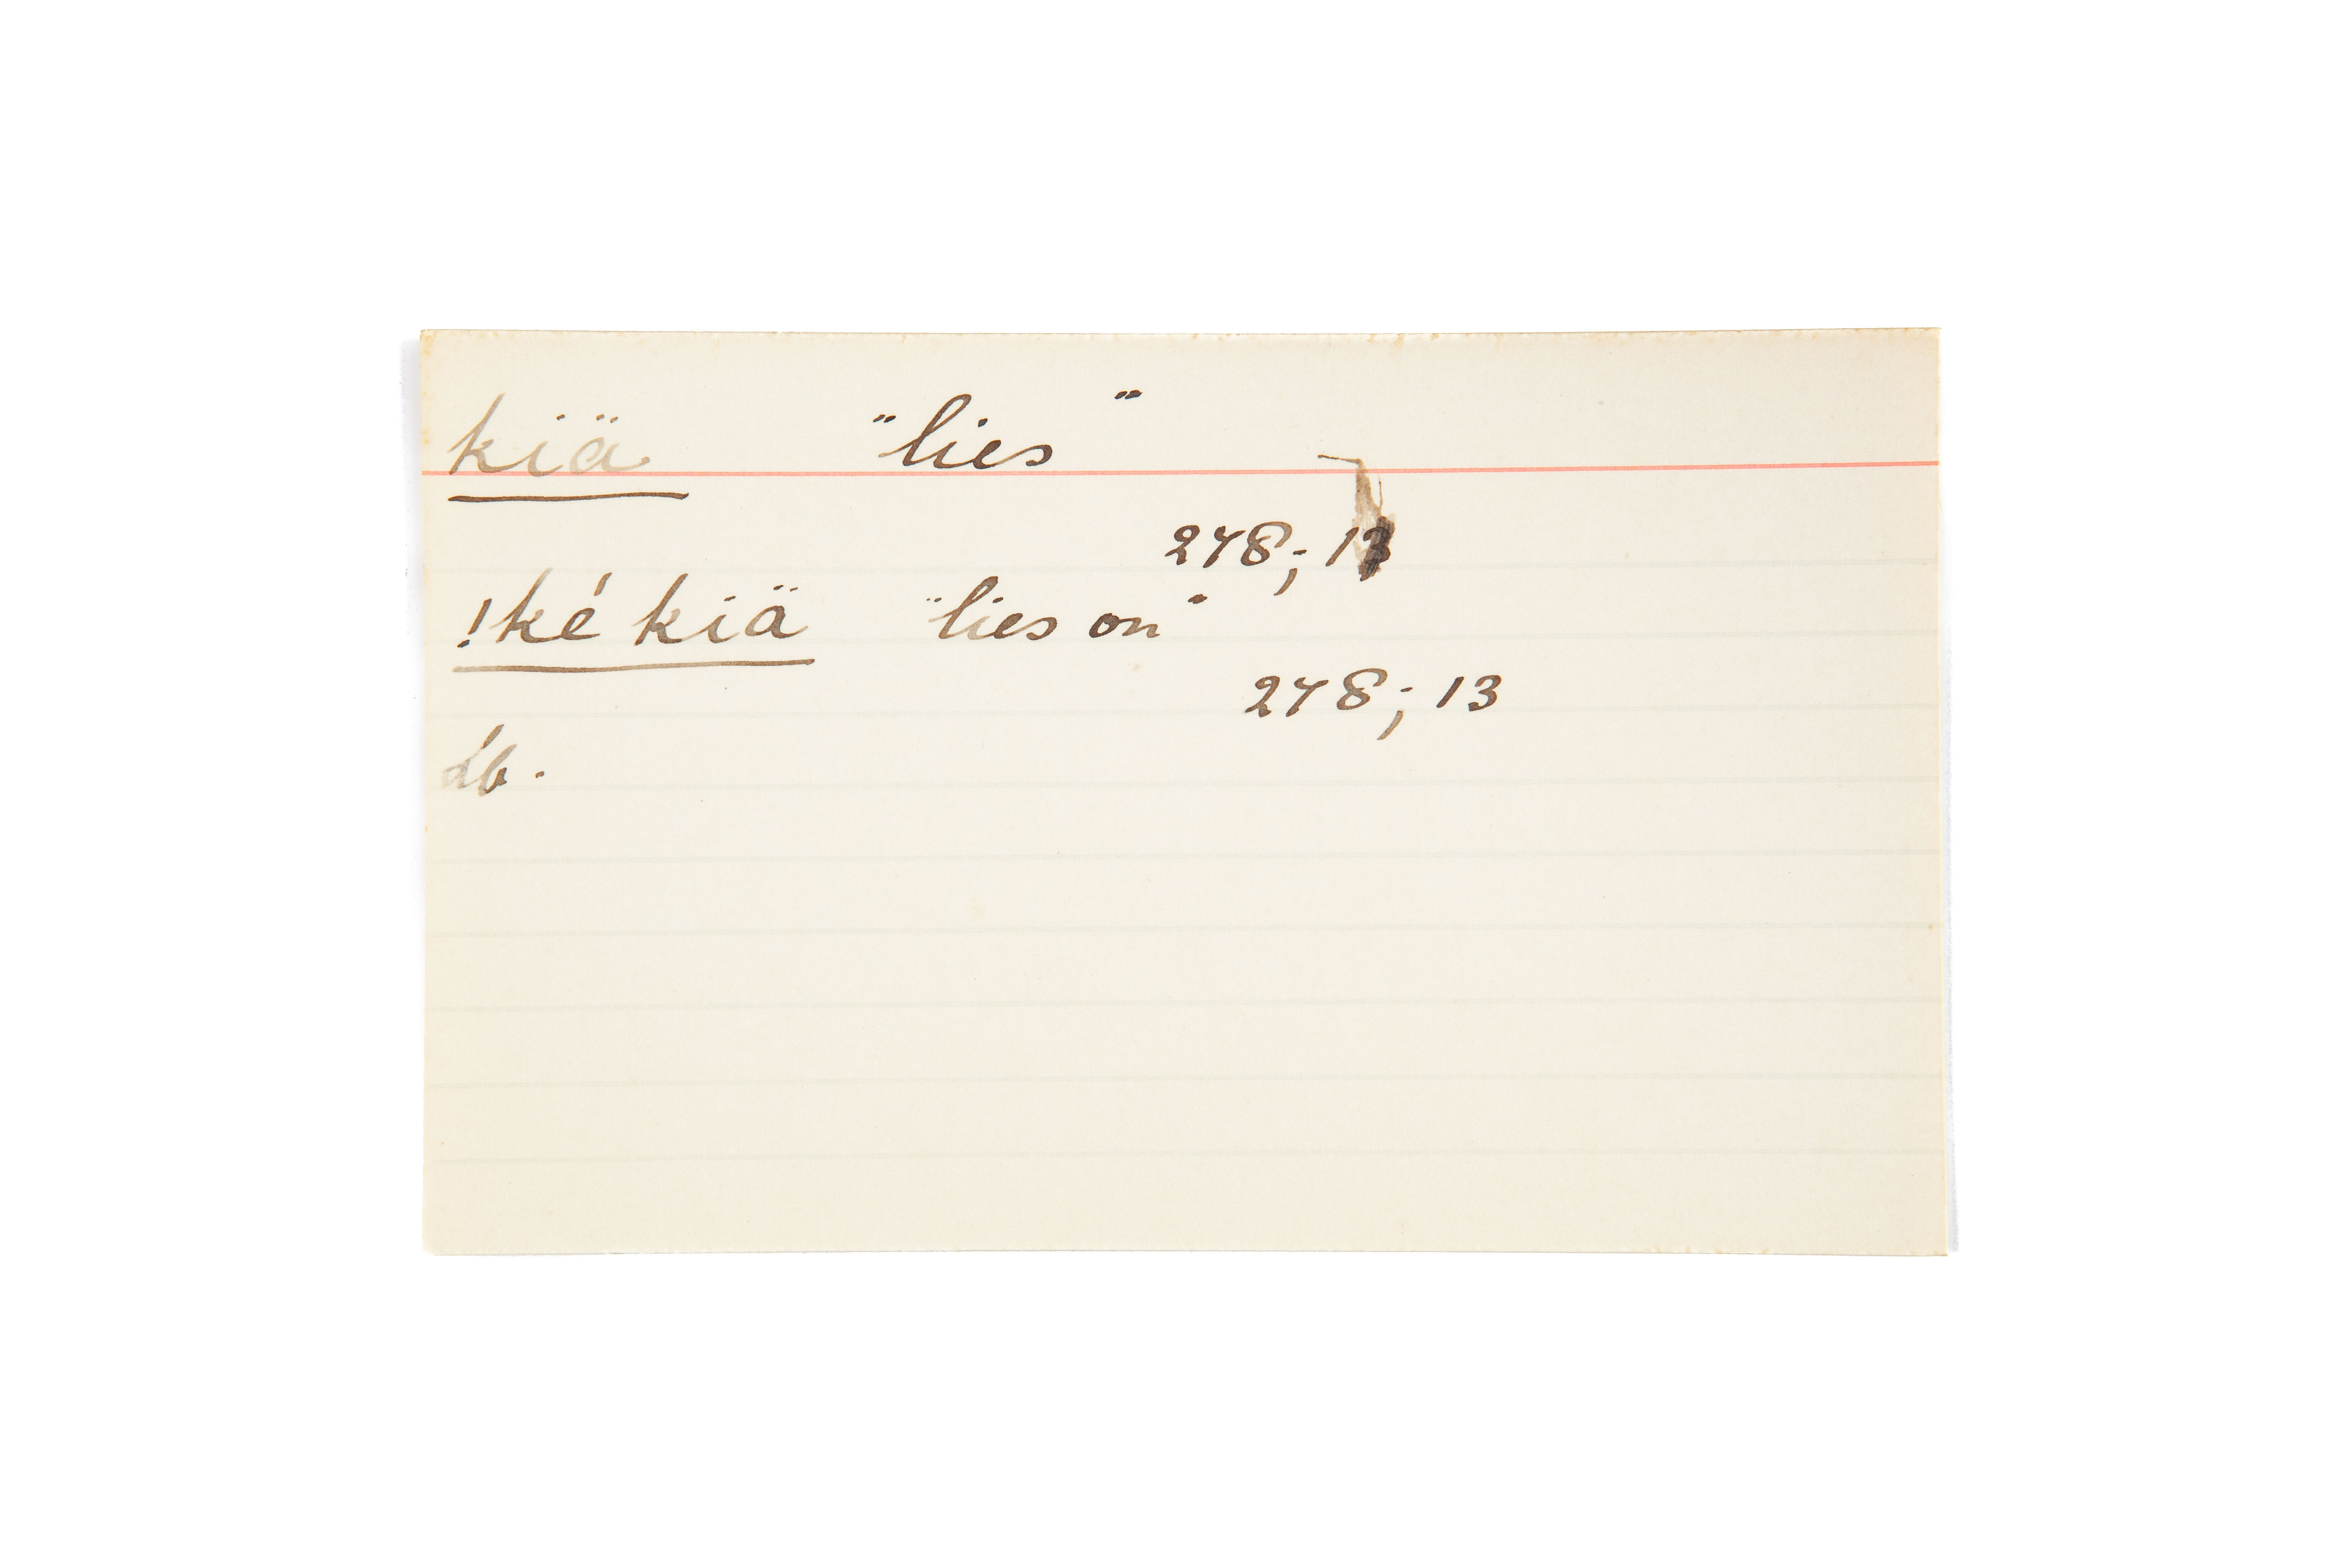 kiä "lies"
278; 13
!ké kiä "lies on"
278; 13